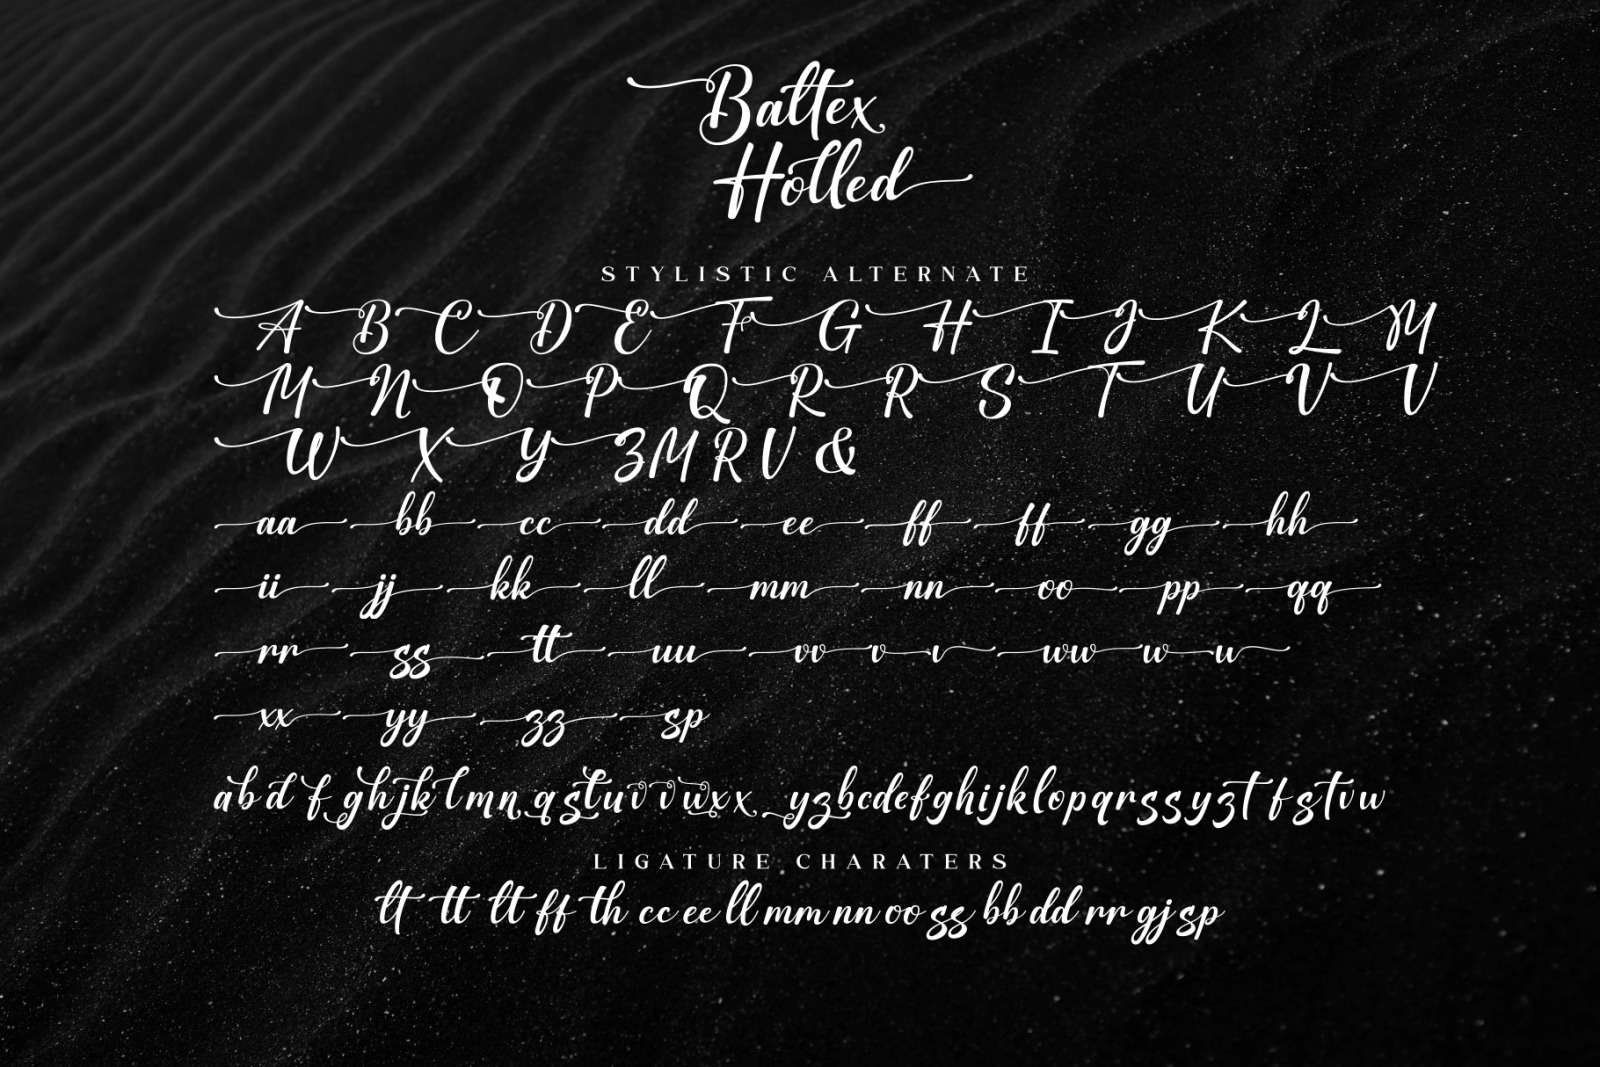 Baltex
Holled
STYLISTIC ALTERNATE
A B C D E F G H I J K L M
M N O P Q R R S T U V V
W X Y Z M R V &
aa bb cc dd ee ff ff gg hh
ii jj kk ll mm nn oo pp qq
rr ss tt uu vv v v ww w w
xx yy zz sp
a b d f g h j k l m n q s t u v v w x x y z b c d e f g h i j k l o p q r s s y z t f s t v w
LIGATURE CHARATERS
lt tt lt ff th cc ee ll mm nn oo ss bb dd rr gj sp